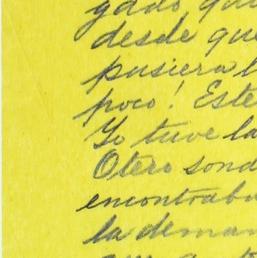 gado, que
desde que
pusiera l
poco! Este
Yo tuve la
Otero sond
encontraba
la deman